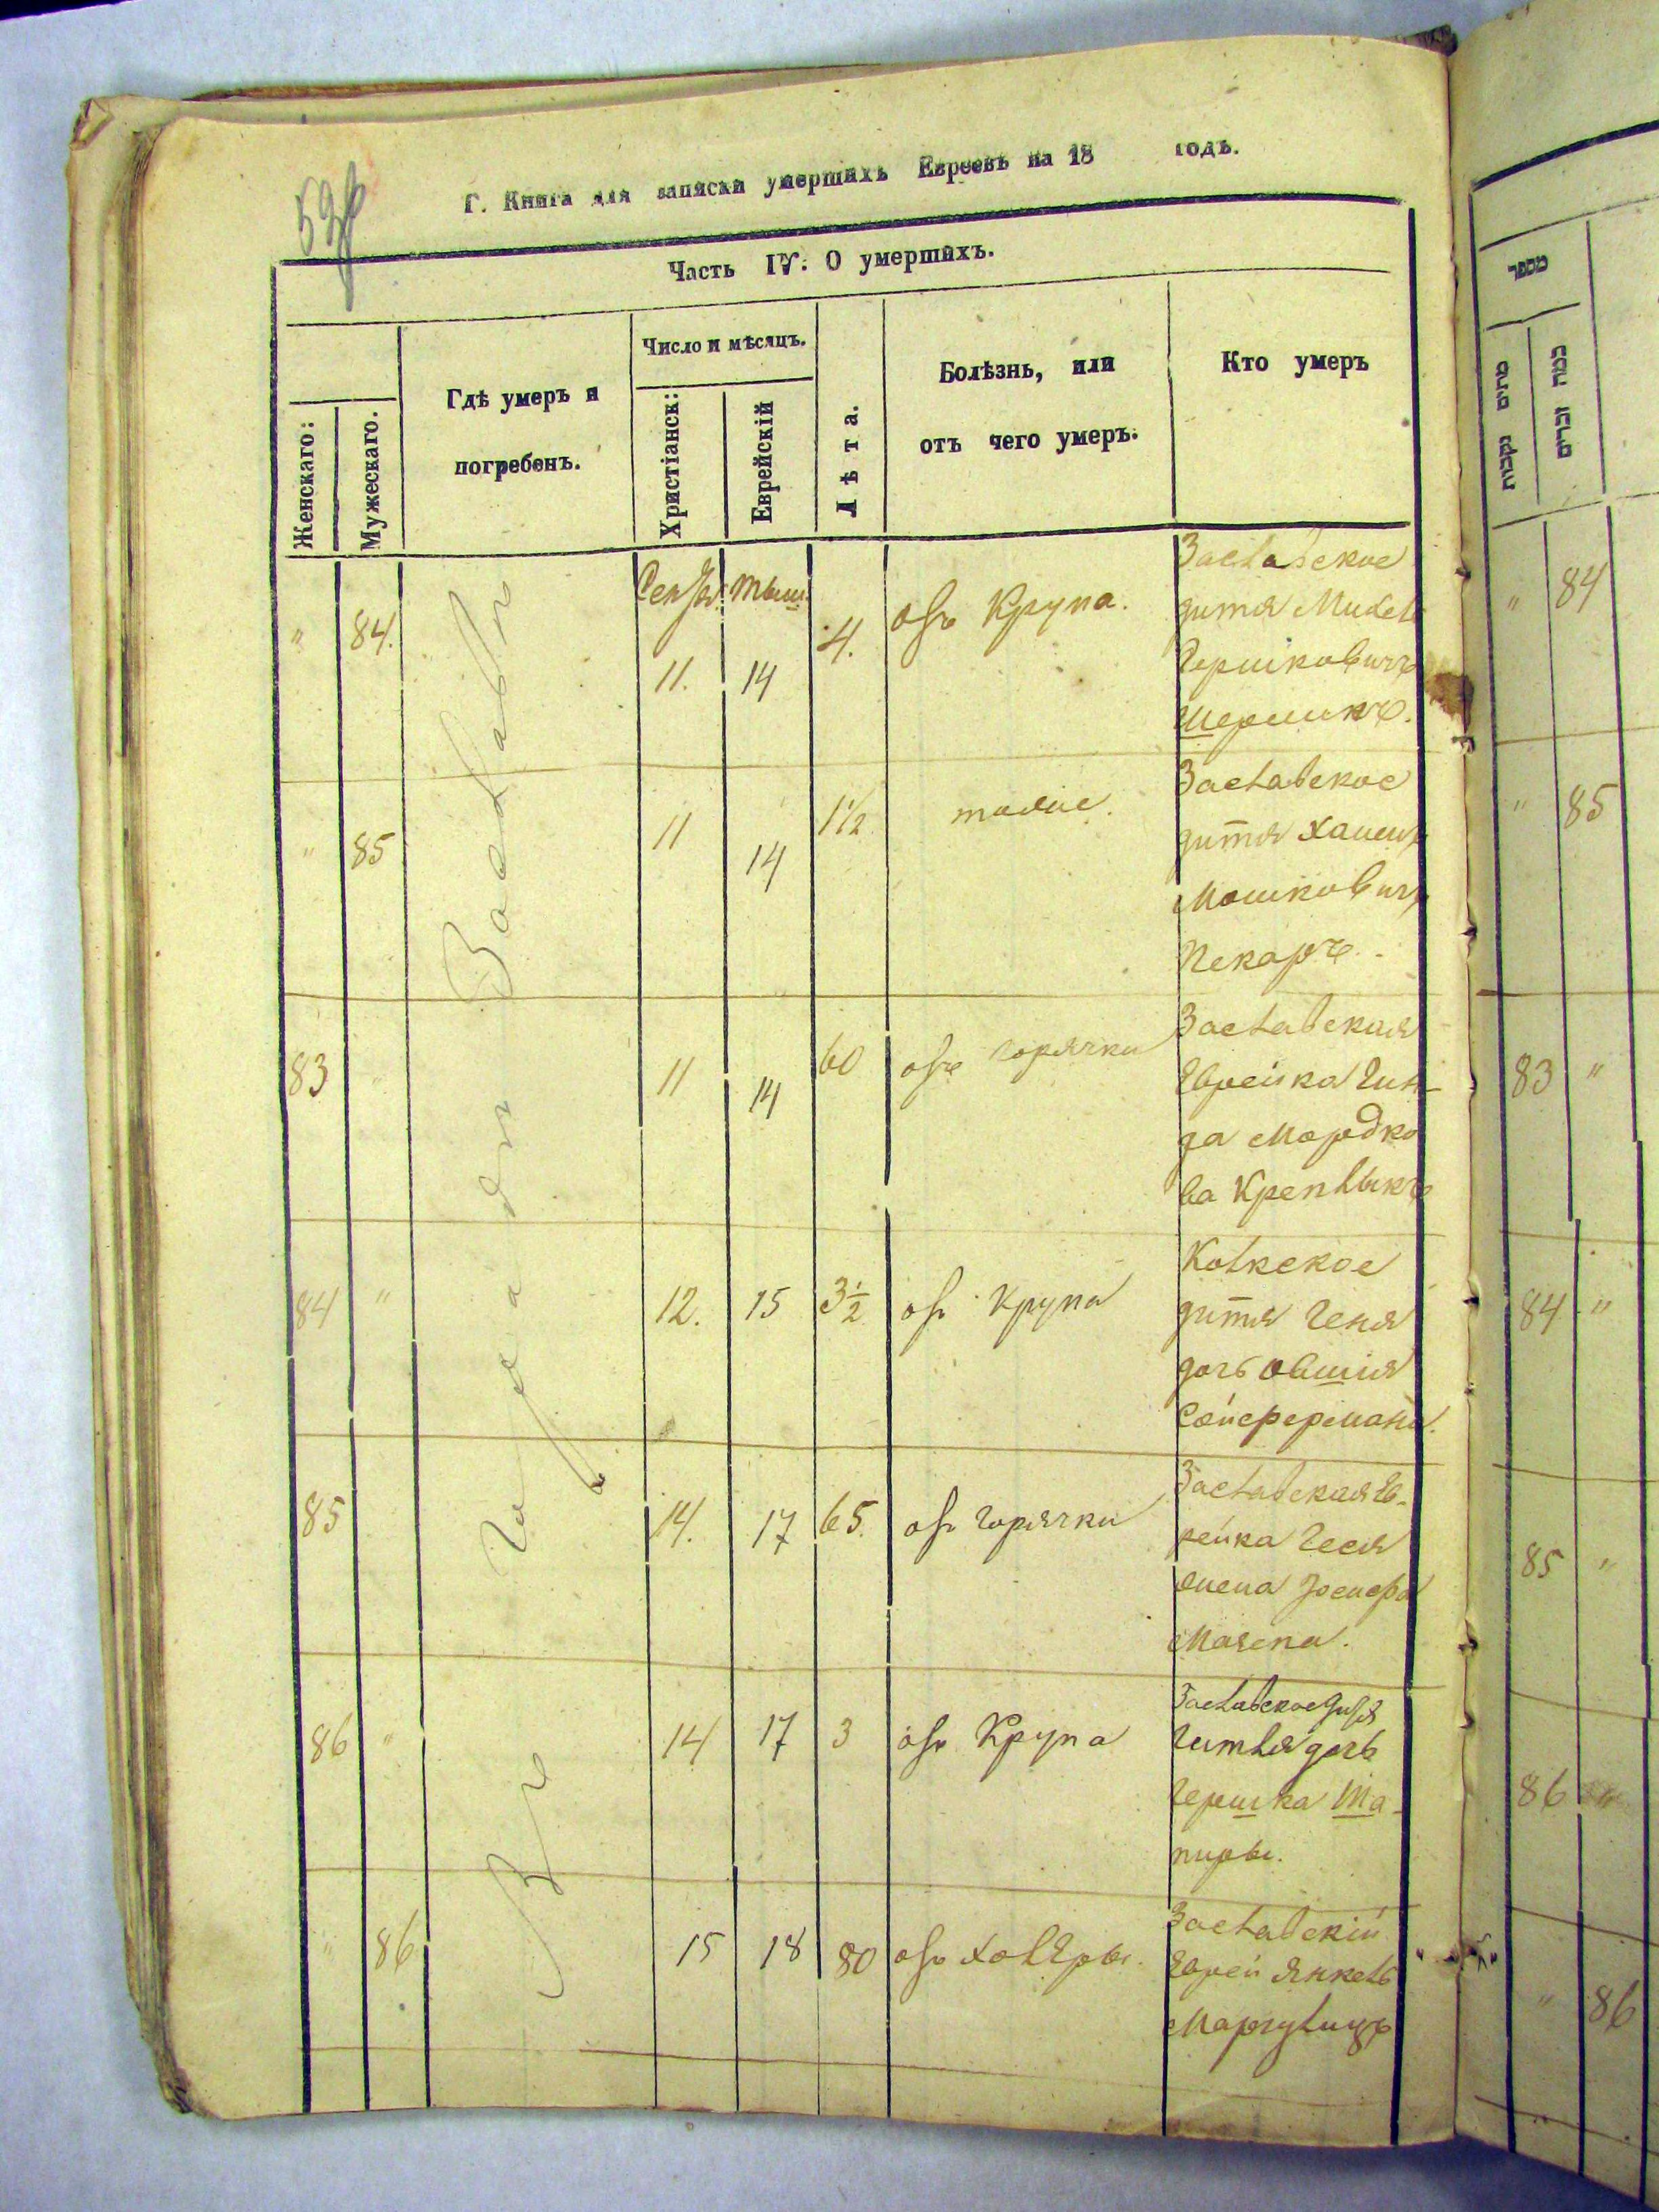 Г. Книга для записки умершихъ Евреевъ на 18 годъ.
Часть IV. О умершихъ.
Женскаго:
Мужескаго.
Гдѣ умеръ и
погребенъ.
Число и мѣсяцъ.
Христіанск:
Еврейскій
Лѣта.
Болѣзнь, или
отъ чего умеръ.
Кто умеръ
Въ Городѣ Заславлѣ
" 84. 11. 14 4. отъ Крупа.
Заславское
дитя
Гершковичъ
" 85 11 14 1½ тоже.
Заславское
дитя
Мошковичъ
Пекаръ.
83 " 11 14 60 отъ горячки
Заславская
Еврейка Гин-
да Мордко
ва
84 " 12. 15 3½ отъ Крупа
дитя Геня
дочь Овшия
85 14. 17 65. отъ горячки
Заславская Ев-
рейка Геся
жена
86 " 14 17 3 отъ Крупа
Заславское дитя
Гитля дочь
Гершка Ша-
пиры.
" 86 15 18 80 отъ холеры.
Заславскій
Еврей Янкель
Маргулицъ
מספר
מתים נקבות
כמה זכרים
" 84
" 85
83 "
84 "
85 "
86 "
" 86